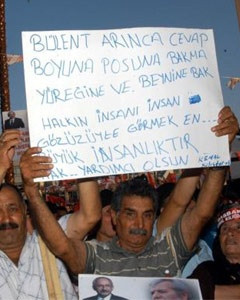 BÜLENT ARINCA CEVAP
BOYUNA POSUNA BAKMA
YÜREĞİNE VE. BEYNİNE BAK
HALKIN İNSANI İNSAN
GÖZÜZÜYLE GÖRMEK EN...
BÜYÜK İNSANLIKTIR
YARDIMCI OLSUN